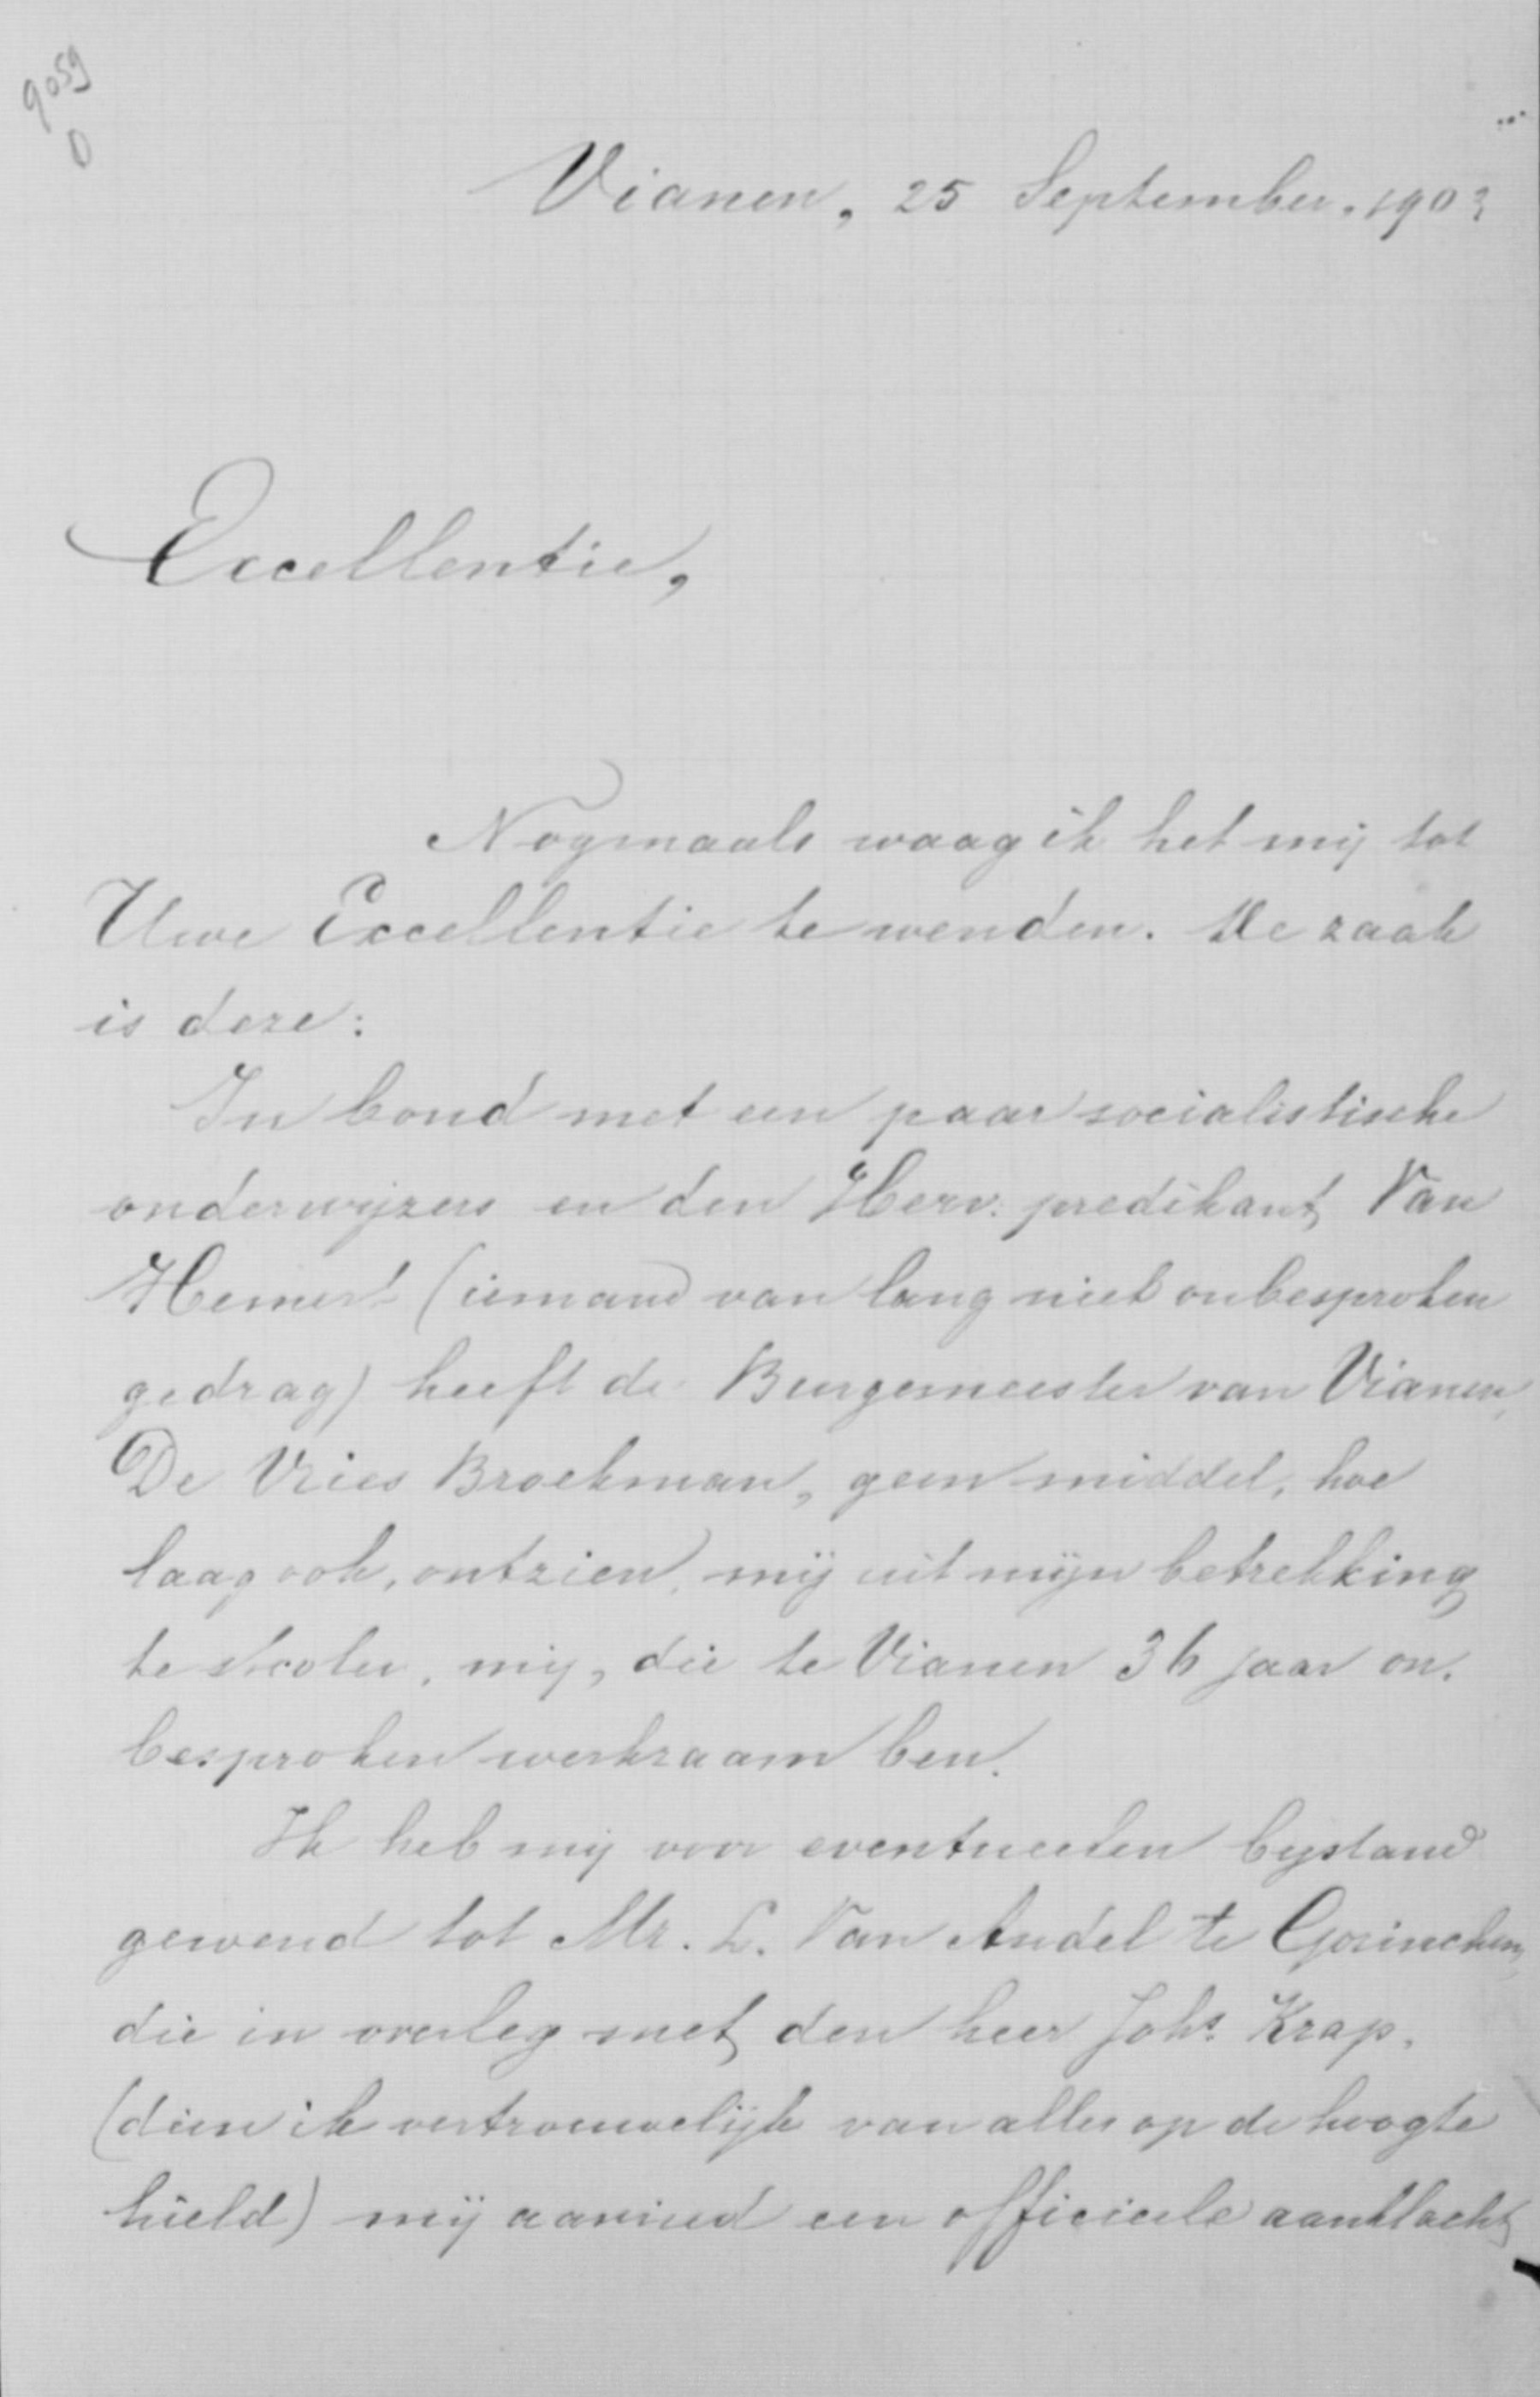 9059
0
Vianen, 25 September. 1903
Excellentie,
Nogmaals waag ik het mij tot
Uwe Excellentie te wenden. De zaak
is deze:
In bond met een paar socialistische
onderwijzers en den Herv. predikant Van
Hemert (iemand van lang niet onbesproken
gedrag) heeft de Burgemeester van Vianen,
De Vries Broekman, geen middel, hoe
laag ook, ontzien, mij uit mijn betrekking
te stooten, mij, die te Vianen 36 jaar on-
besproken werkzaam ben.
Ik heb mij voor eventueelen bijstand
gewend tot Mr. L. Van Andel te Gorinchem,
die in overleg met den heer Johs. Krap,
(dien ik vertrouwelijk van alles op de hoogte
hield) mij aanried een officieele aanklacht